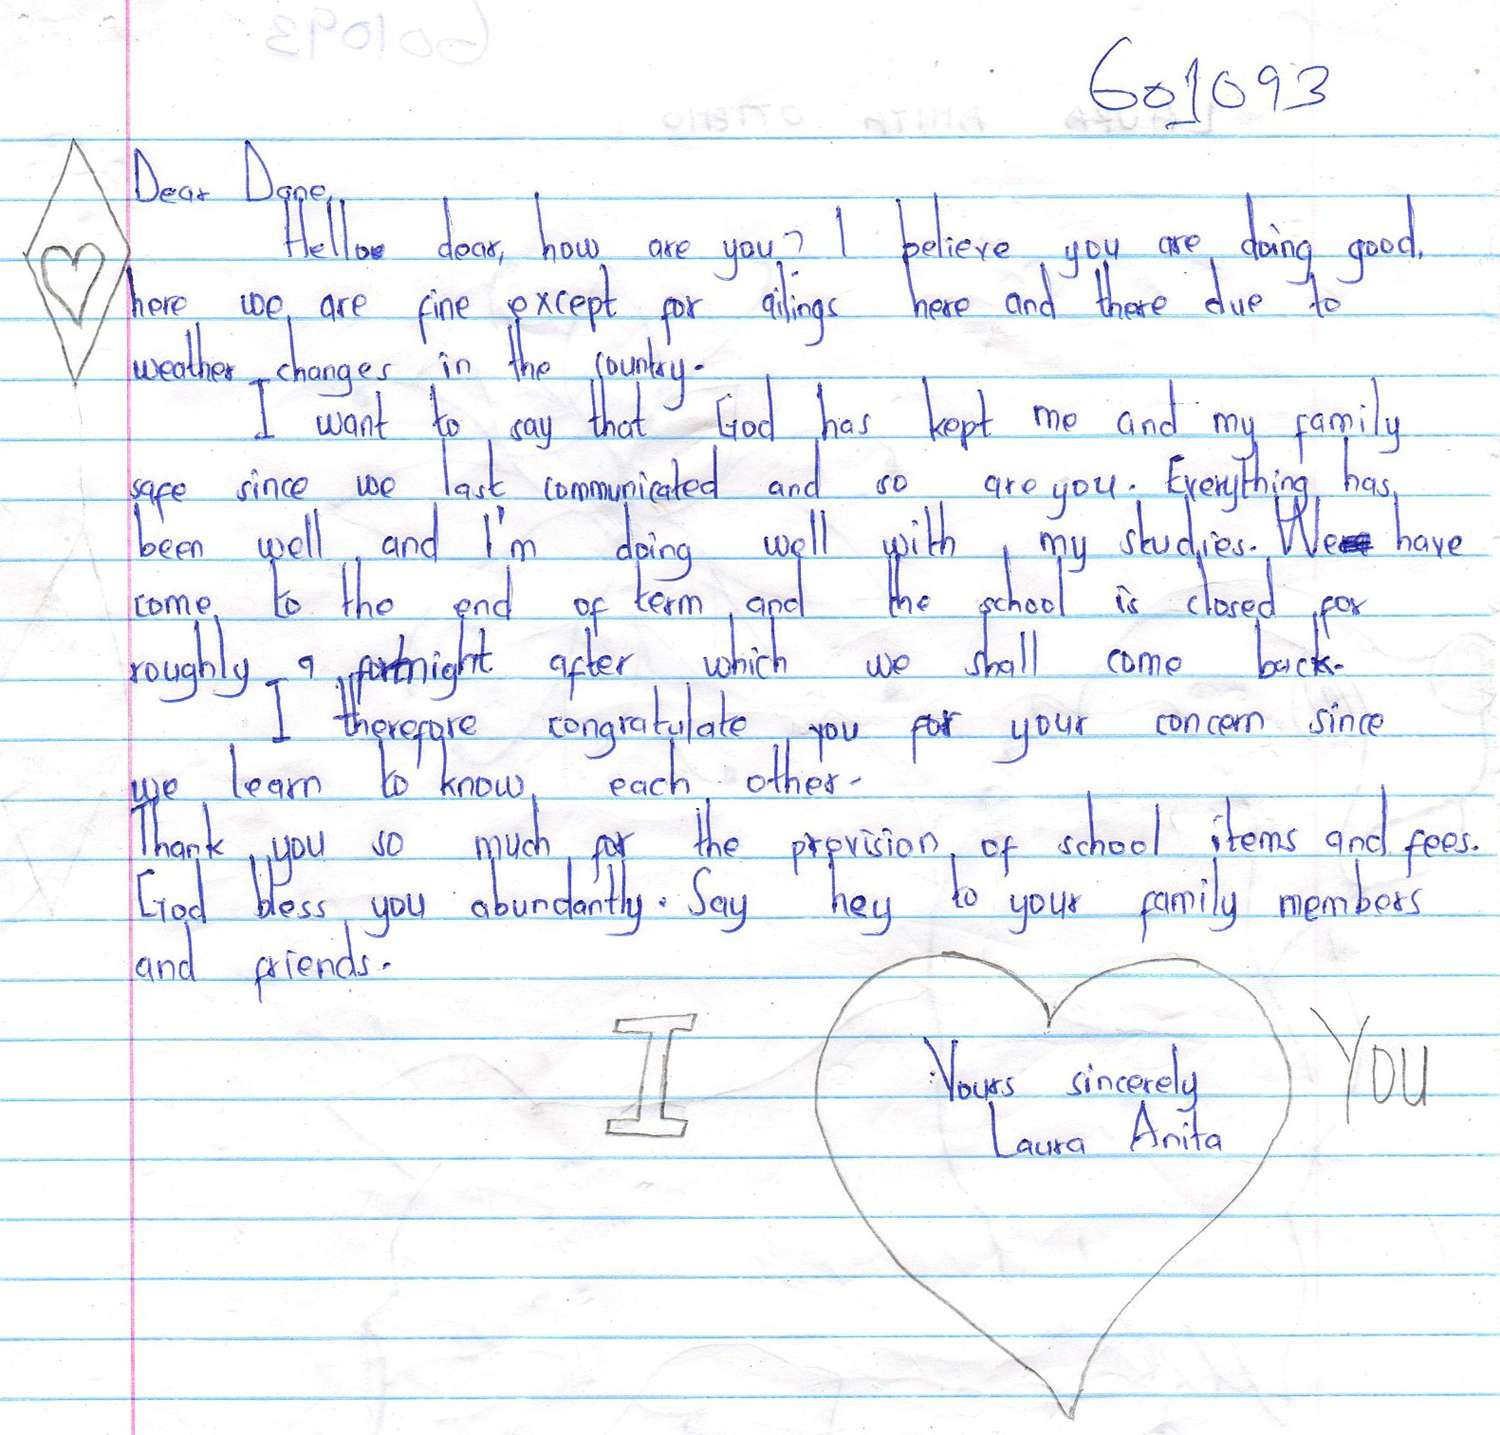 601093
Dear Dane,
Hello dear, how are you? I believe you are doing good,
here we are fine except for ailings here and there due to
weather changes in the country.
I want to say that God has kept me and my family
safe since we last communicated and so are you. Everything has
been well and I'm doing well with my studies. We have
come to the end of term and the school is closed for
roughly a fortnight after which we shall come back.
I therefore congratulate you for your concern since
we learn to know each other.
Thank you so much for the provision of school items and fees.
God bless you abundantly. Say hey to your family members
and friends.
I YOU
Yours sincerely
Laura Anita